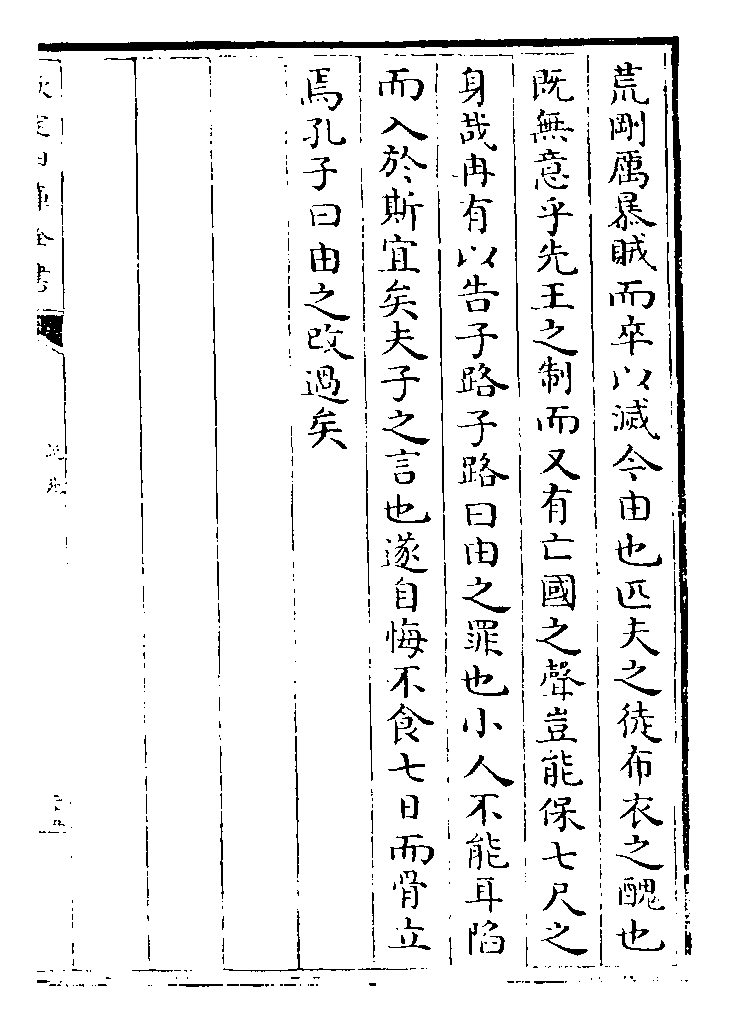 荒剛厲暴賊而卒以滅今由也匹夫之徒布衣之醜也
既無意乎先王之制而又有亡國之聲豈能保七尺之
身哉冉有以告子路子路曰由之罪也小人不能耳陷
而入於斯宜矣夫子之言也遂自悔不食七日而骨立
焉孔子曰由之改過矣
欽定四庫全書